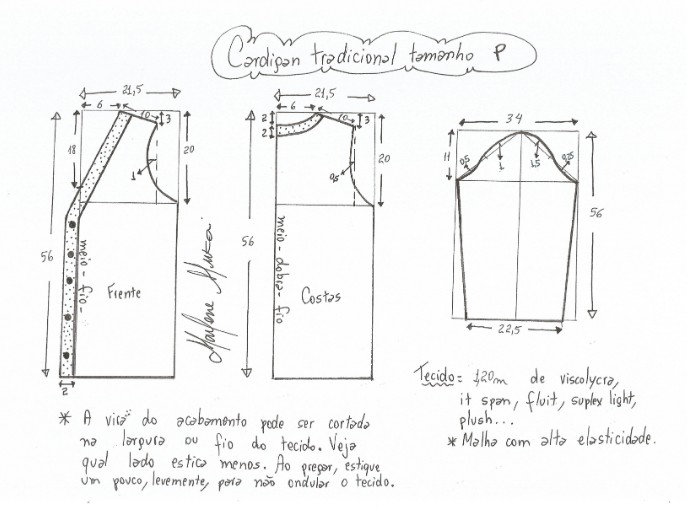 Cardigan tradicional tamanho P
21,5
6
10
3
18
20
1
56
meio - fio -
Frente
2
Marlene Mukai
21,5
6
2
2
10
3
20
0,5
56
meio - dobra - fio
Costas
34
11
0,5
1
1,5
0,75
56
22,5
Tecido = 1,20m de viscolycra,
it span, fluit, suplex light,
plush...
* Malha com alta elasticidade.
* A vira do acabamento pode ser cortada
na largura ou fio do tecido. Veja
qual lado estica menos. Ao pregar, estique
um pouco, levemente, para não ondular o tecido.